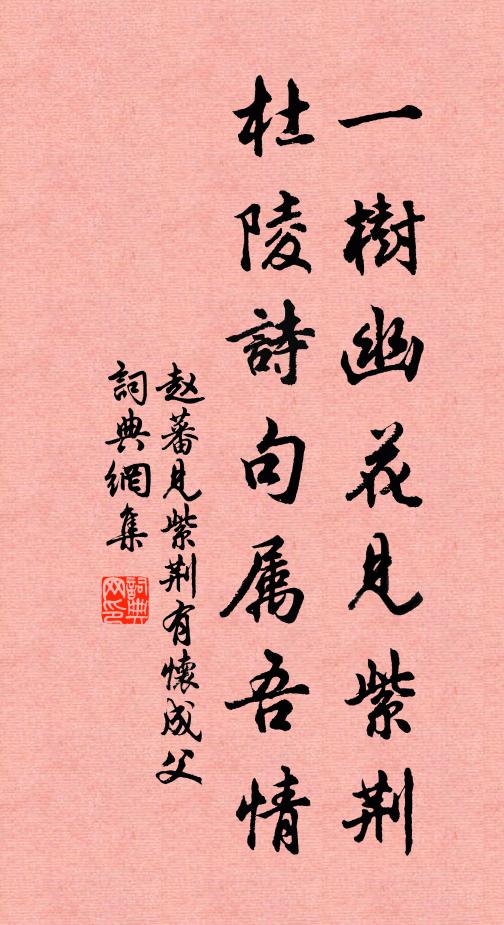 一樹幽花見紫荆
杜陵詩句属吾情
赵蕃見紫荆有懷成父
詞典網集
詞典網印